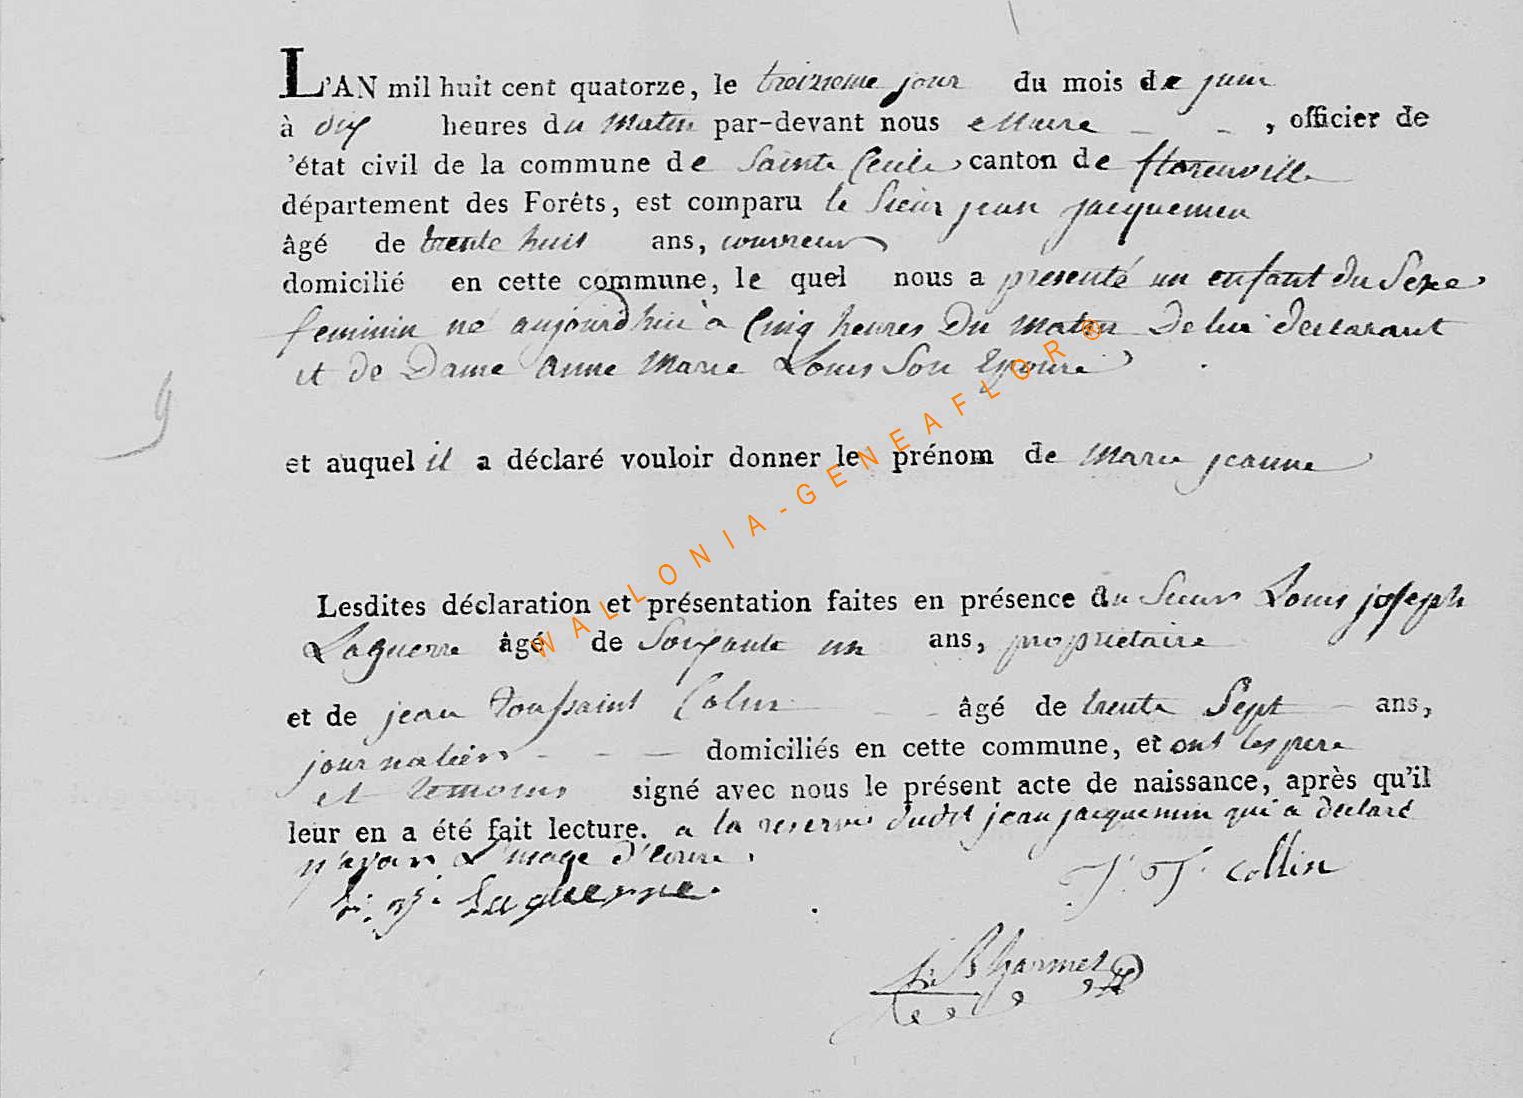 L'AN mil huit cent quatorze, le treizieme jour du mois de juin
à dix heures du matin par-devant nous Maire , officier de
'état civil de la commune de Sainte Cecile canton de florenville
département des Forêts, est comparu le Sieur jean jacquemin
âgé de trente huit ans, couvreur
domicilié en cette commune, le quel nous a presenté un enfant du Sexe
feminin né aujourd'hui à Cinq heures Du Matin De lui declarant
et de Dame Anne Marie Louis Son Epouse
9
et auquel il a déclaré vouloir donner le prénom de Marie jeanne
Lesdites déclaration et présentation faites en présence du Sieur Louis joseph
Laguerre âgé de Soixante un ans, propriétaire
et de jean toussaint Colin âgé de trente Sept ans,
journalier domiciliés en cette commune, et ont les pere
et temoins signé avec nous le présent acte de naissance, après qu'il
leur en a été fait lecture. a la reserve dudit jean jacquemin qui a déclaré
n'avoir L'usage d'ecrire.
L. J. Laguerre.
J. T. Collin
WALLONIA-GENEAFLOR®